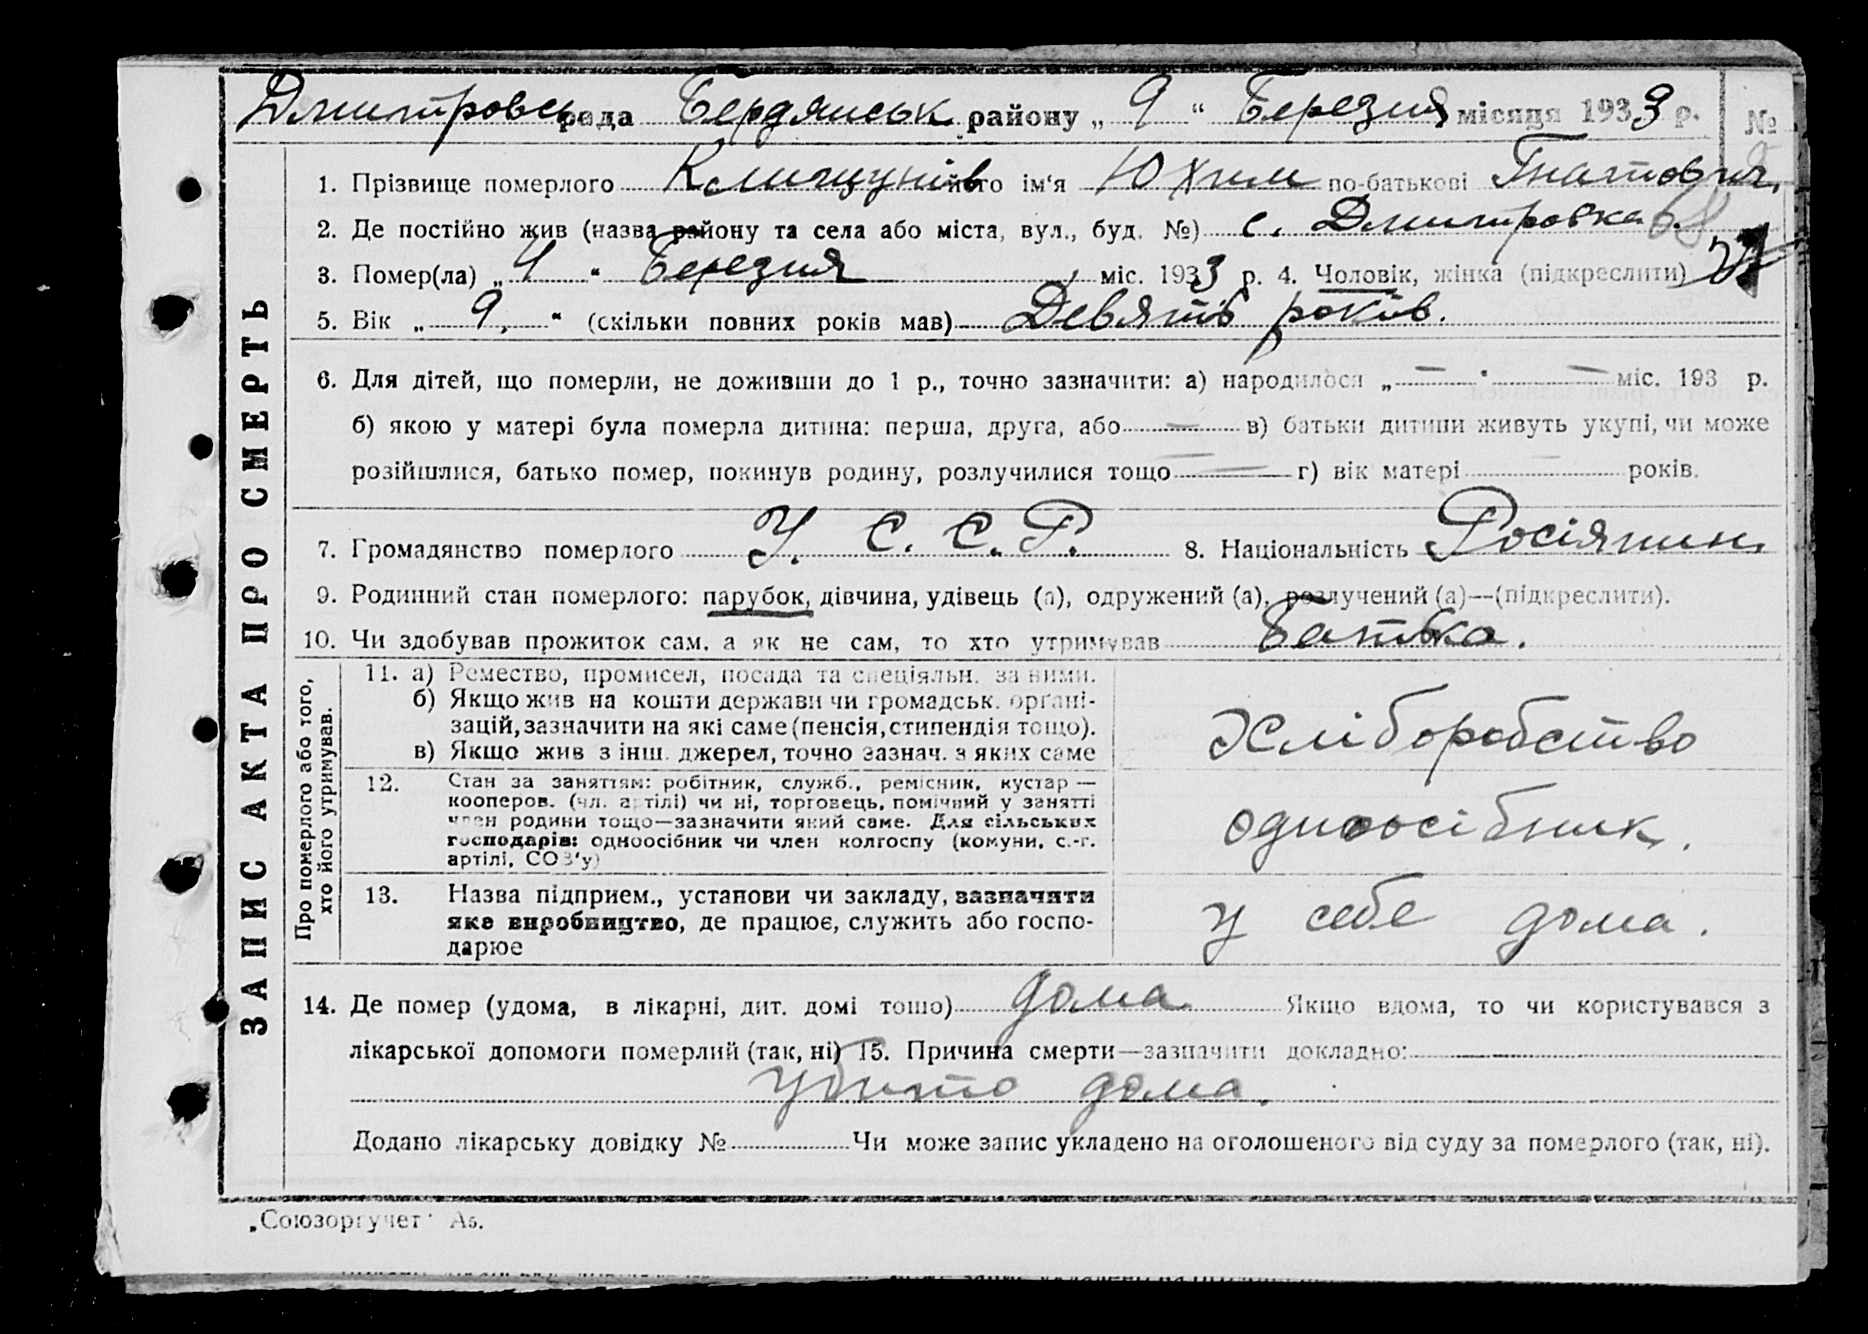 Дмитровськ рада Бердянськ району „ 9 “ Березня місяця 1933 р. №
1. Прізвище померлого Клищунів його ім‘я Юхим по-батькові Гнатович,
2. Де постійно жив (назва району та села або міста, вул., буд. №) с. Дмитровка 68
3. Помер(ла) „ 4 “ Березня, міс. 1933 р. 4. Чоловік, жінка (підкреслити)
5. Вік „ 9. “ (скільки повних років мав) Девять років.
6. Для дітей, що померли, не доживши до 1 р., точно зазначити: а) народилося „ — “ — міс. 193 р.
б) якою у матері була померла дитина: перша, друга, або — в) батьки дитини живуть укупі, чи може
розійшлися, батько помер, покинув родину, розлучилися тощо — г) вік матері — років.
7. Громадянство померлого У. С. С. Р. 8. Національність Росіянин,
9. Родинний стан померлого: парубок, дівчина, удівець (а), одружений (а), розлучений (а)—(підкреслити).
10. Чи здобував прожиток сам, а як не сам, то хто утримував Батька.
ЗАПИС АКТА ПРО СМЕРТЬ
Про померлого або того,
хто його утримував.
11. а) Ремество, промисел, посада та спеціяльн. за ними.
б) Якщо жив на кошти держави чи громадськ. орґані-
зацій, зазначити на які саме (пенсія, стипендія тощо).
в) Якщо жив з інш. джерел, точно зазнач. з яких саме
Хліборобство
12. Стан за заняттям: робітник, служб., ремісник, кустар —
кооперов. (чл. артілі) чи ні, торговець, помічний у занятті
член родини тощо—зазначити який саме. Для сільських
господарів: одноосібник чи член колгоспу (комуни, с.-г.
артілі, СОЗ‘у)
одноосібник.
13. Назва підприєм., установи чи закладу, зазначити
яке виробництво, де працює, служить або госпо-
дарює
у себе дома.
14. Де помер (удома, в лікарні, дит. домі тощо) дома Якщо вдома, то чи користувався з
лікарської допомоги померлий (так, ні) 15. Причина смерти—зазначити докладно:
убито дома.
Додано лікарську довідку № Чи може запис укладено на оголошеного від суду за померлого (так, ні).
„Союзоргучет“ А5.